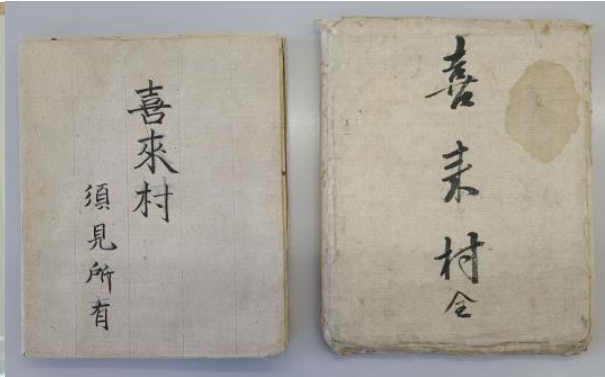 喜來村
須見所有
喜来村全